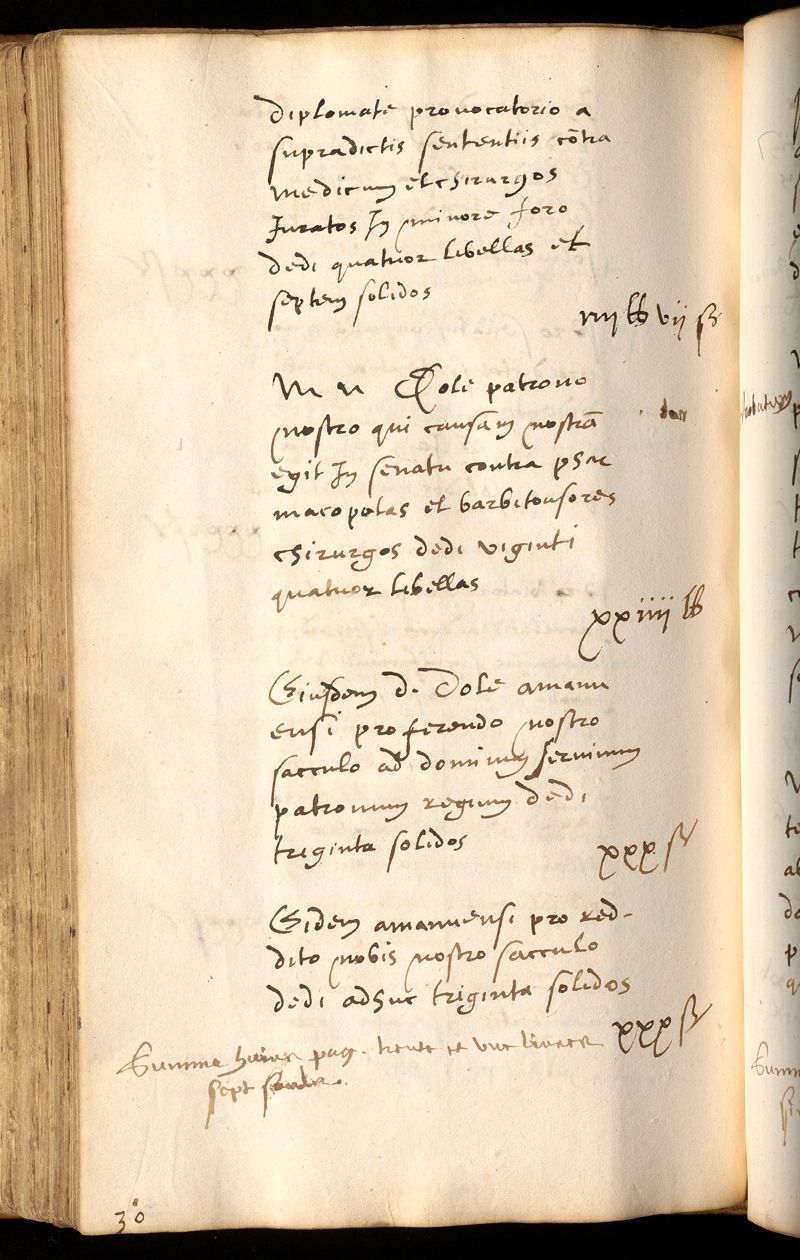 diplomate provocatorio a
supradictis sententiis cõtra
medicum et chirurgos
Juratos In minore foro
dedi quatuor libellas et
septem solidos
iiii lb vii ß
M n Dole patrono
nostro qui causam nostrã
egit In senatu contra phar
macopolas et barbitonsores
chirurgos dedi viginti
quatuor libellas
xxiiii lb
Eiusdem d. Dole amanu
ensi pro ferendo nostro
sacculo ad dominum servinum
patronum regium dedi
triginta solidos
xxx ß
Eidem amanuensi pro red-
dito nobis nostro sacculo
dedi adhuc triginta solidos
xxx ß
Summa huius pag. trente et une livres
sept soulz.
30